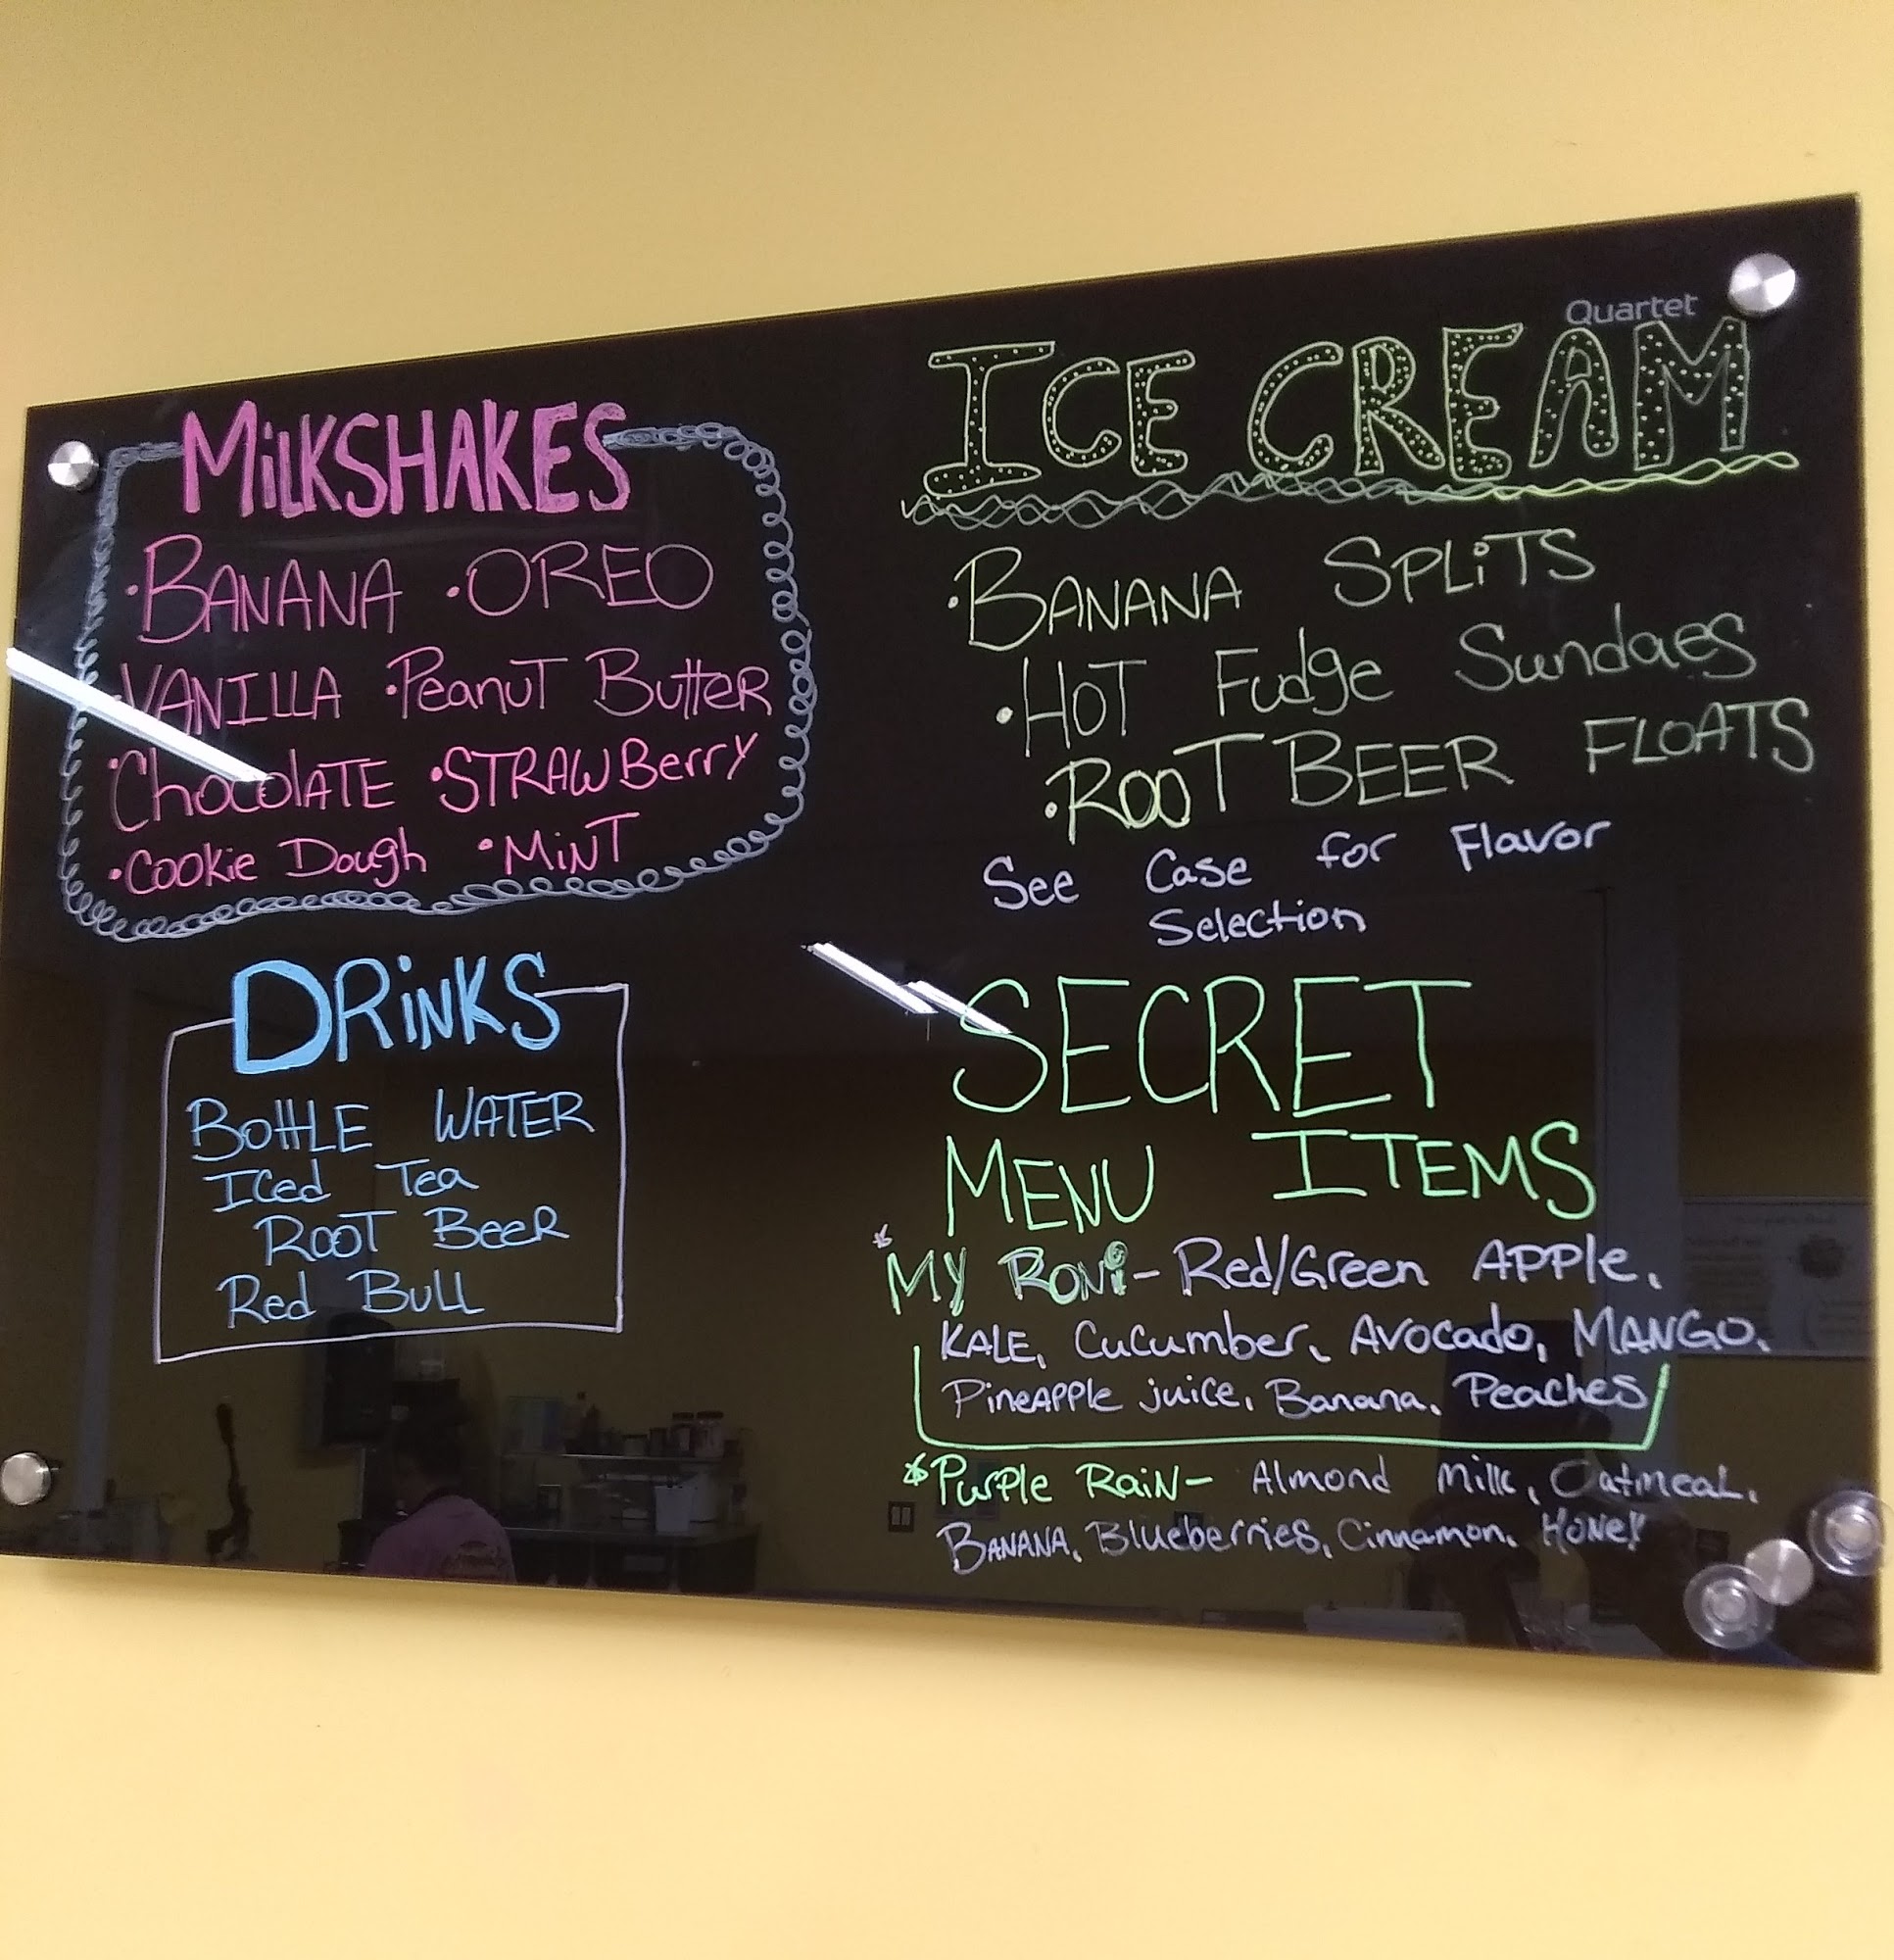 Quartet
MiLKSHAKES
•BANANA •OREO
VANILLA •Peanut Butter
•ChocolATE •STRAWBerry
•Cookie Dough •MiNT
DRiNKS
BOttLE WATER
ICed Tea
ROOT BeeR
Red BuLL
ICE CREAM
•BANANA SPLiTS
•HOT Fudge Sundaes
•ROOT BEER FLOATS
See Case for Flavor
Selection
SECRET
MENU ITEMS
*MY RONi- Red/Green APPle,
KALE, CuCumber, Avocado, MANGO,
PineAPPle juice, Banana, Peaches
*Purple RaiN- Almond Milk, Oatmeal,
BANANA, Blueberries, Cinnamon, HONeY